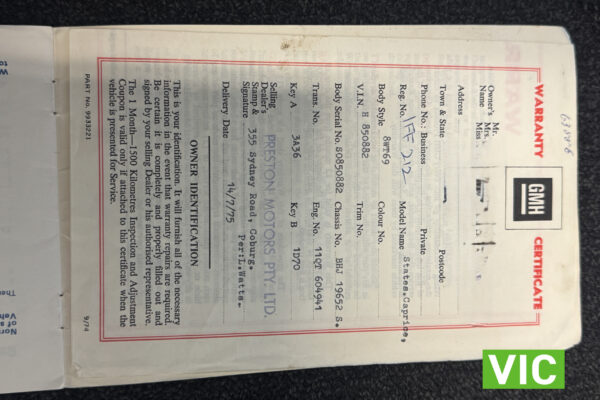 WARRANTY GMH CERTIFICATE
Owner's Mr.
Name Mrs.
Miss
Address
Town & State Postcode
Phone No.: Business Private
Reg. No. Model Name States.Caprice.
Body Style 8WT69 Colour No.
V.I.N. H 850882 Trim No.
Body Serial No. 80850882 Chassis No. BHJ 19652 S.
Trans. No. Eng. No. 11QT 604941
Key A 3A36 Key B 1D70
Selling
Dealer's PRESTON MOTORS PTY. LTD.
Stamp & 355 Sydney Road, Coburg.
Signature Per:L.Watts.
Delivery Date 14/7/75
OWNER IDENTIFICATION
This is your identification. It will furnish all of the necessary
information in the event that warranty repairs are required.
Be certain it is completely and properly filled out and
signed by your selling Dealer or his authorised representative.
The 1 Month—1500 Kilometres Inspection and Adjustment
Coupon is valid only if attached to this certificate when the
vehicle is presented for Service.
PART No. 9933221 9/74
VIC